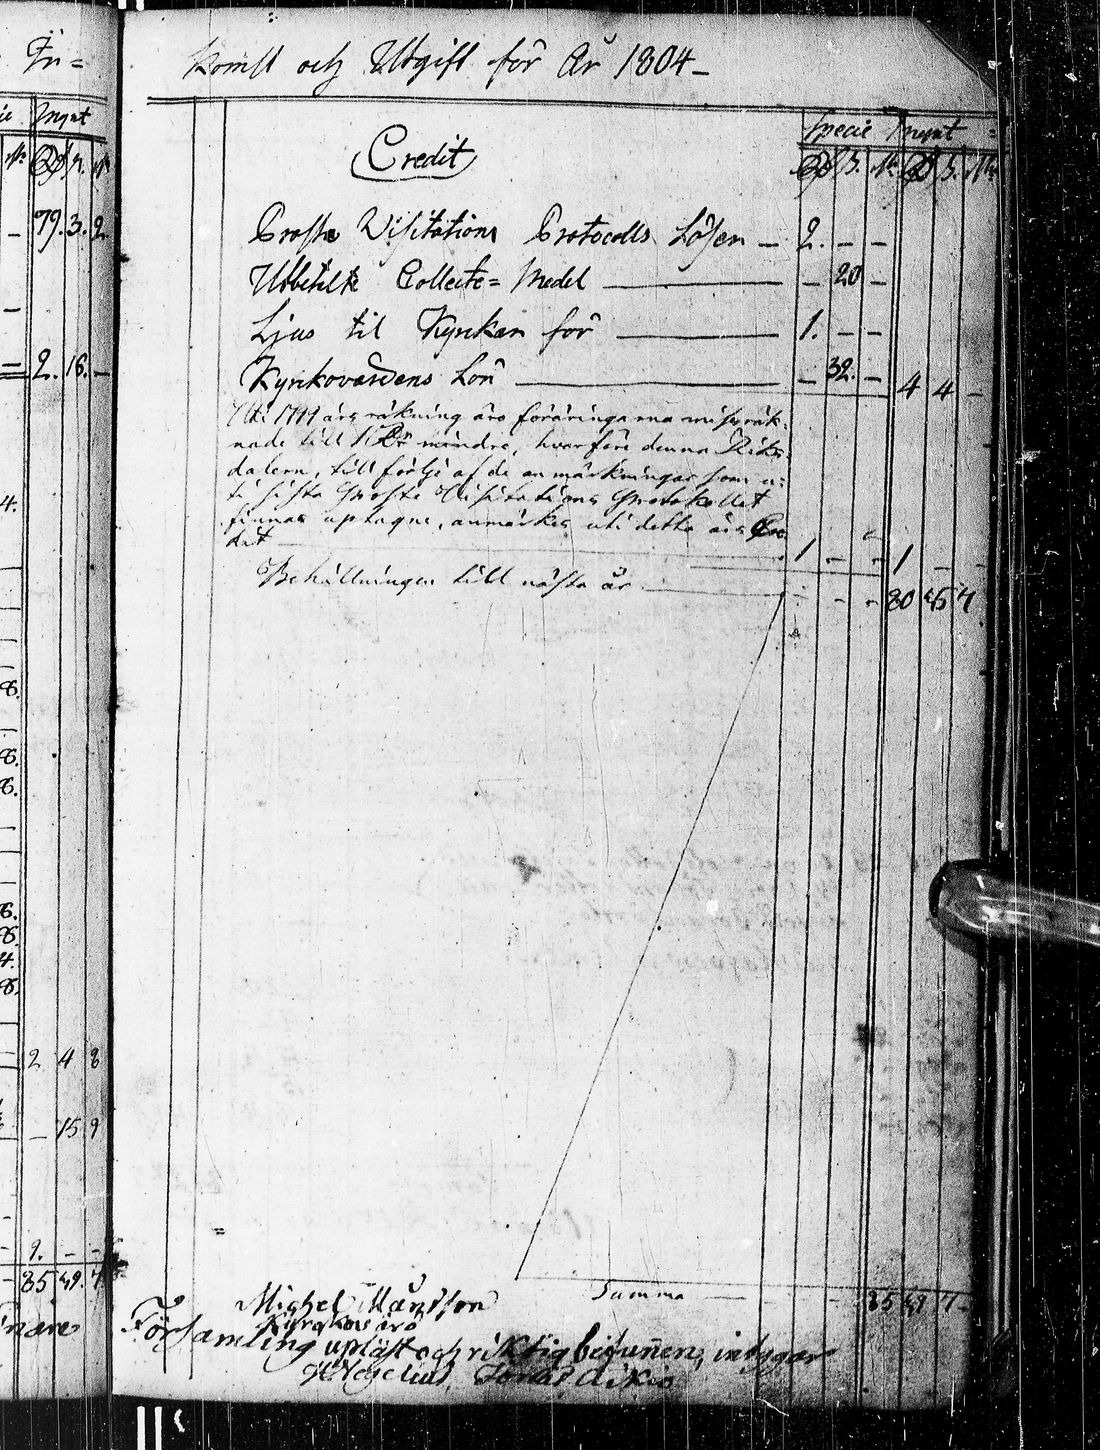 In=
komst och Utgift för År 1804_
Mynt
Specie Mynt
Credit
Rd s. rst. Rd s. rst.
79. 3. 2.
Prosta Visitations Protocolls Lösen — 2. — —
Utbetalte Collecte= Medel — — 20 —
Ljus til Kyrkan för — 1. — —
2. 16. —
Kyrkovardens Lön — — 32. — 4 4 —
Uti 1799 års räkning äro föräringarna missräk-
nade till 1 Rdr mindre, hvarföre denna Riks-
dalern, till följe af de anmärkningar som u-
ti sista Prosta Visitations Protokollet
finnas uptagne, anmärkes uti detta års Cre-
dit — 1 — — 1 — —
Behållningen till nästa år — — — 80 45 7
2 4 8
— 15 9
9. — —
85 49. 7
Summa — 85 49 7
Michel Mårtsson
Kyrkovärd
Församling upläst och riktig befunnen, intygar
Jonas